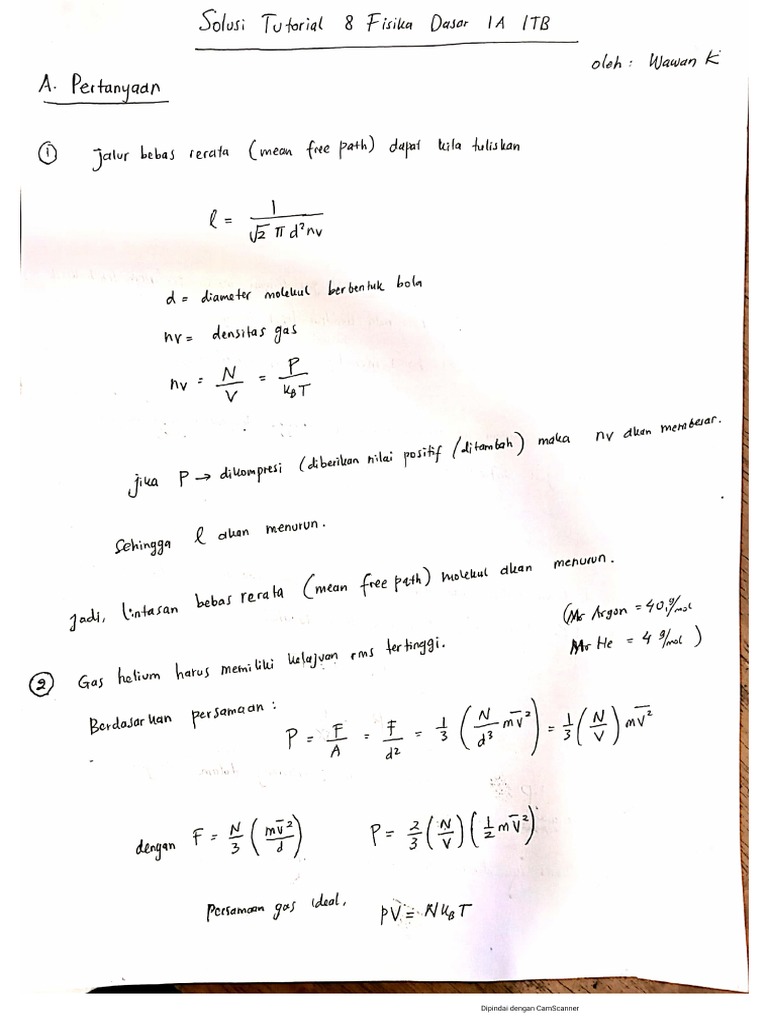 Solusi Tutorial 8 Fisika Dasar 1A ITB
oleh : Wawan K
A. Pertanyaan
① jalur bebas rerata (mean free path) dapat kita tuliskan
ℓ = 1 / (√2 π d² nv)
d = diameter molekul berbentuk bola
nv = densitas gas
nv = N/V = P/(k_B T)
jika P → dikompresi (diberikan nilai positif /ditambah) maka nv akan membesar.
Sehingga ℓ akan menurun.
Jadi, lintasan bebas rerata (mean free path) molekul akan menurun.
(Mr Argon = 40 g/mol
Mr He = 4 g/mol )
② Gas helium harus memiliki kelajuan rms tertinggi.
Berdasarkan persamaan :
P = F/A = F/d² = 1/3 (N/d³ m v̅²) = 1/3 (N/V) m v̅²
dengan F = N/3 (m v̅²/d) P = 2/3 (N/V) (1/2 m v̅²)
Persamaan gas ideal,
pV = N k_B T
Dipindai dengan CamScanner